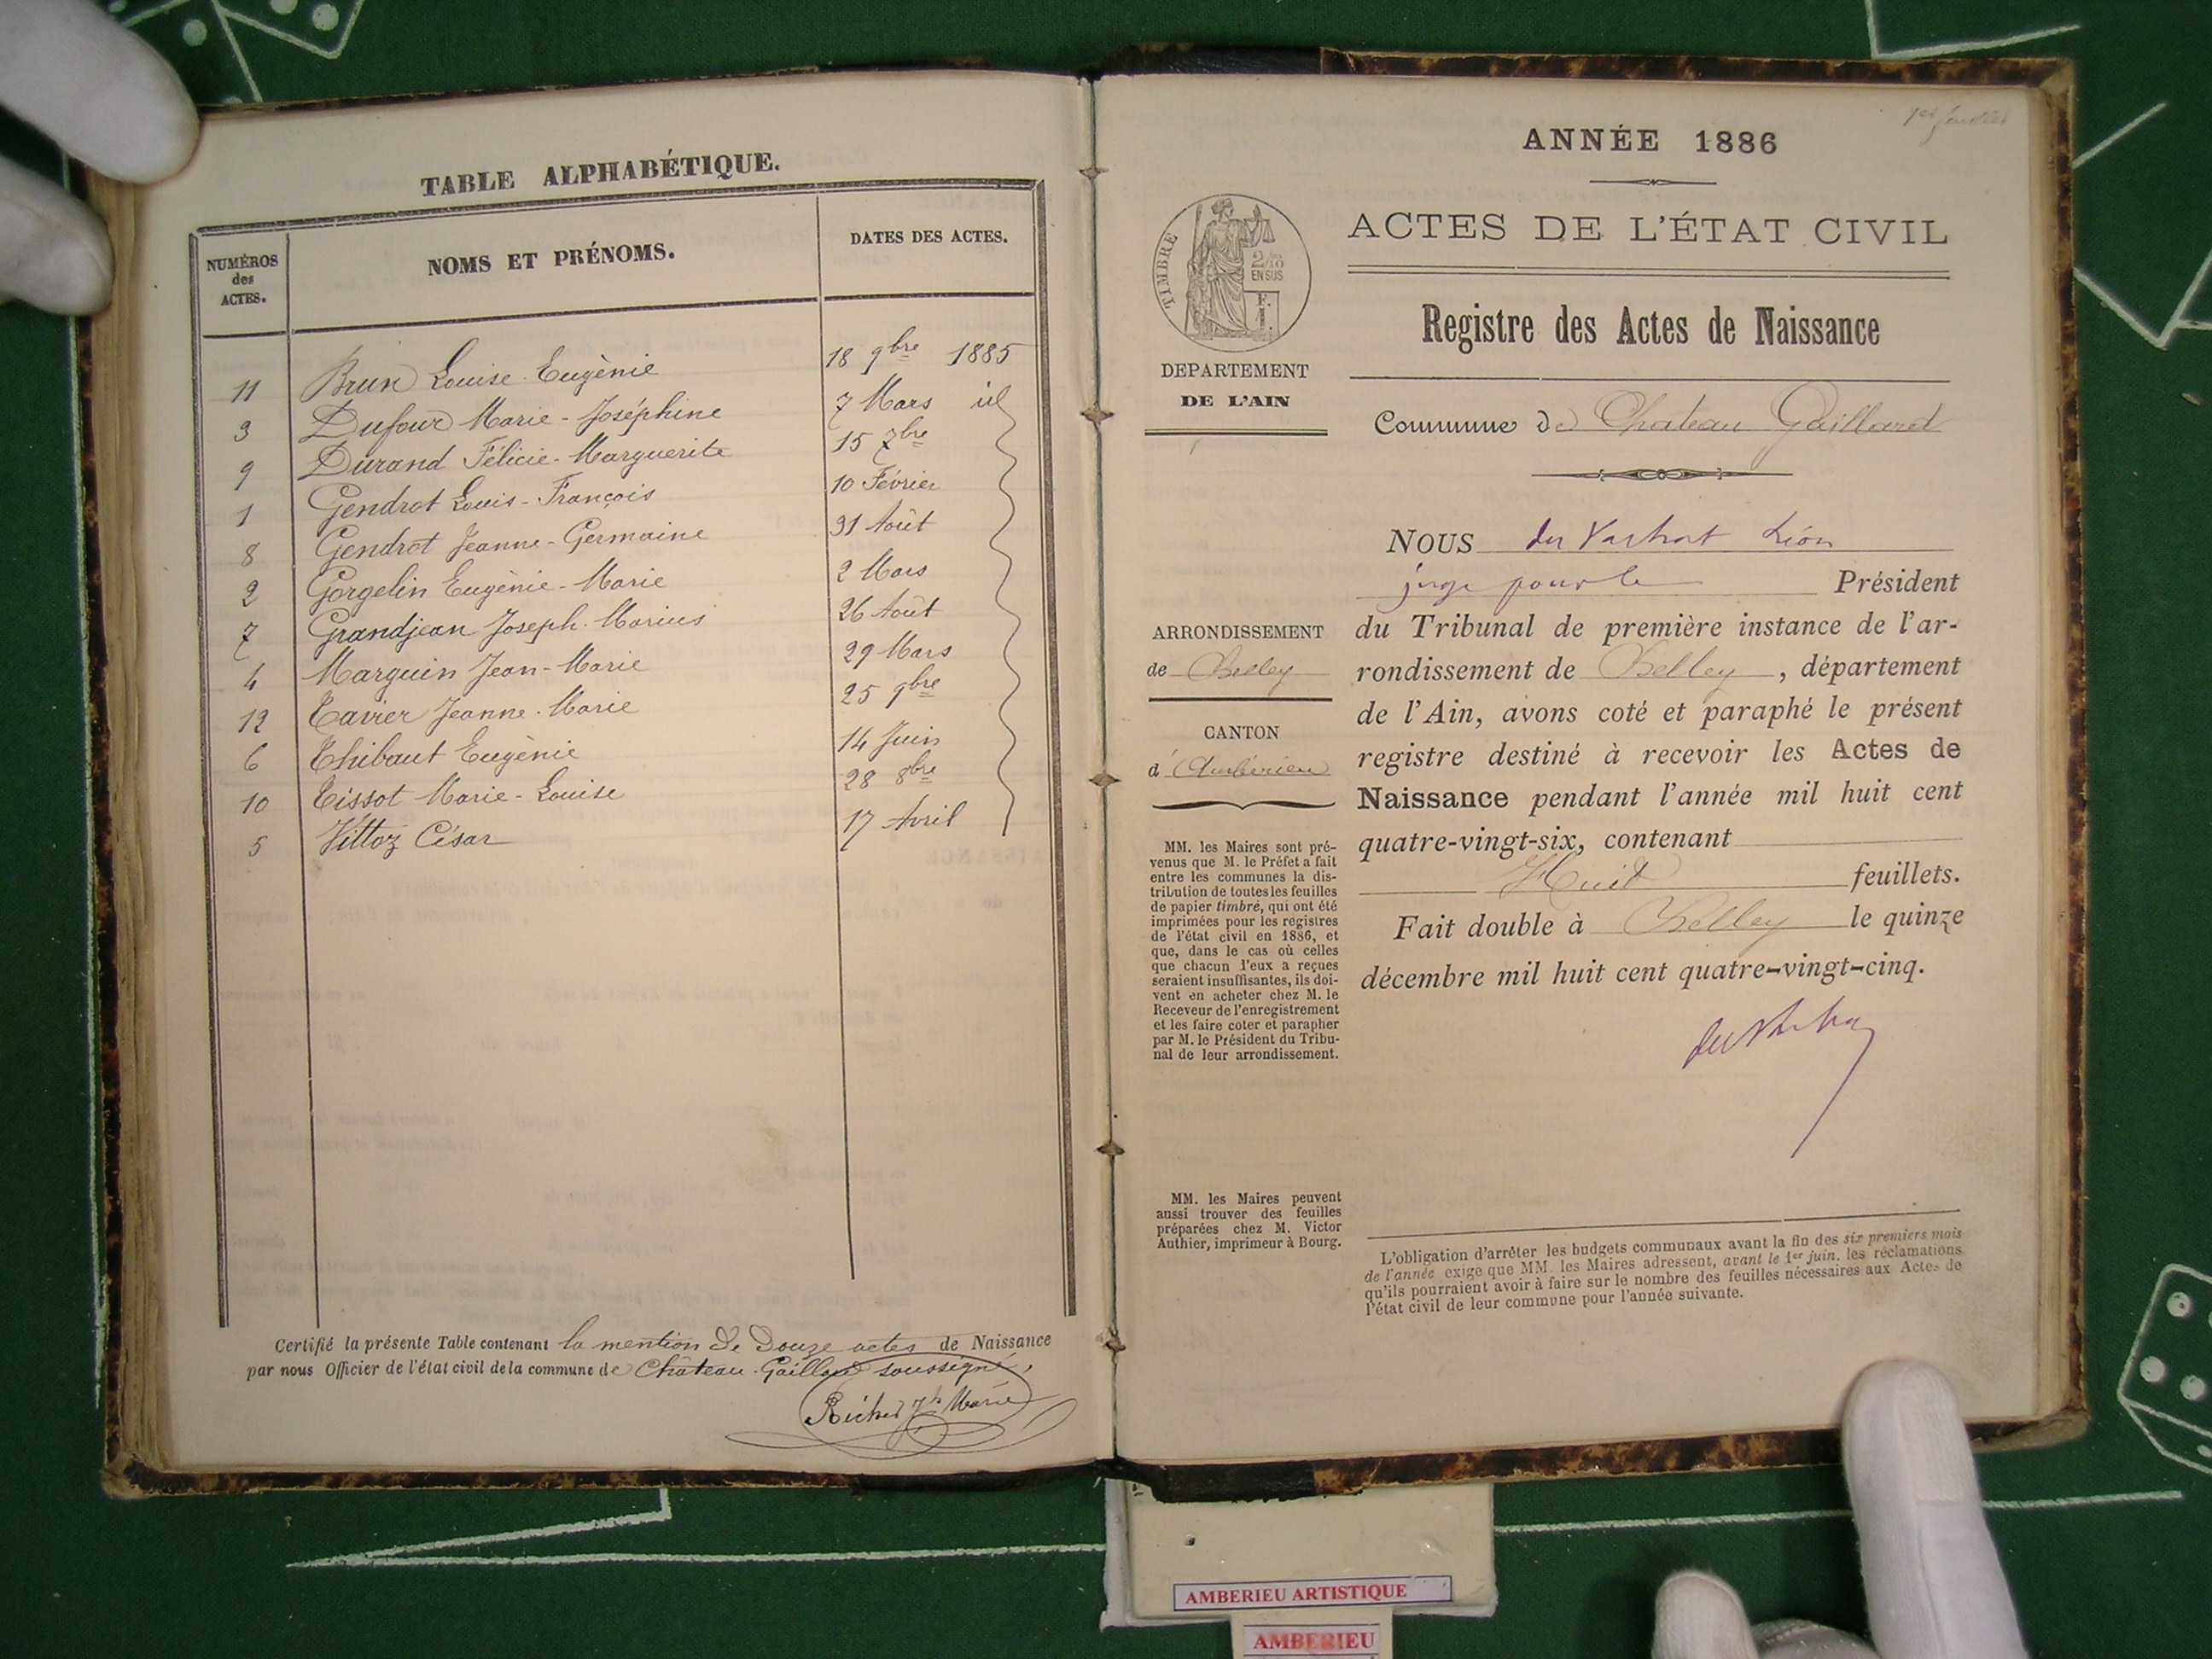 TABLE ALPHABÉTIQUE.
NUMÉROS des ACTES.
NOMS ET PRÉNOMS.
DATES DES ACTES.
11 Brun Louise Eugènie 18 9bre 1885
3 Dufour Marie-Joséphine 7 Mars id
9 Durand Félicie-Marguerite 15 7bre
1 Gendrot Louis-François 10 Février
8 Gendrot Jeanne-Germaine 31 Août
2 Gorgelin Eugènie-Marie 2 Mars
7 Grandjean Joseph-Marius 26 Août
4 Marguin Jean-Marie 29 Mars
12 Tavier Jeanne-Marie 25 9bre
6 Thibaut Eugènie 14 Juin
10 Tissot Marie-Louise 28 8bre
5 Vittoz César 17 Avril
Certifié la présente Table contenant la mention de Douze actes de Naissance
par nous Officier de l'état civil de la commune de Château-Gaillard soussigné,
Marie
ANNÉE 1886
ACTES DE L'ÉTAT CIVIL
Registre des Actes de Naissance
Commune de Chateau Gaillard
TIMBRE
2/10
EN SUS
F.
1.
DEPARTEMENT
DE L'AIN
ARRONDISSEMENT
de Belley
CANTON
d'Ambérieu
MM. les Maires sont pré-
venus que M. le Préfet a fait
entre les communes la dis-
tribution de toutes les feuilles
de papier timbré, qui ont été
imprimées pour les registres
de l'état civil en 1886, et
que, dans le cas où celles
que chacun d'eux a reçues
seraient insuffisantes, ils doi-
vent en acheter chez M. le
Receveur de l'enregistrement
et les faire coter et parapher
par M. le Président du Tribu-
nal de leur arrondissement.
MM. les Maires peuvent
aussi trouver des feuilles
préparées chez M. Victor
Authier, imprimeur à Bourg.
NOUS Léon
juge pour le Président
du Tribunal de première instance de l'ar-
rondissement de Belley, département
de l'Ain, avons coté et paraphé le présent
registre destiné à recevoir les Actes de
Naissance pendant l'année mil huit cent
quatre-vingt-six, contenant
Huit feuillets.
Fait double à Belley le quinze
décembre mil huit cent quatre-vingt-cinq.
L'obligation d'arrêter les budgets communaux avant la fin des six premiers mois
de l'année exige que MM. les Maires adressent, avant le 1er juin. les réclamations
qu'ils pourraient avoir à faire sur le nombre des feuilles nécessaires aux Actes de
l'état civil de leur commune pour l'année suivante.
AMBERIEU ARTISTIQUE
AMBERIEU